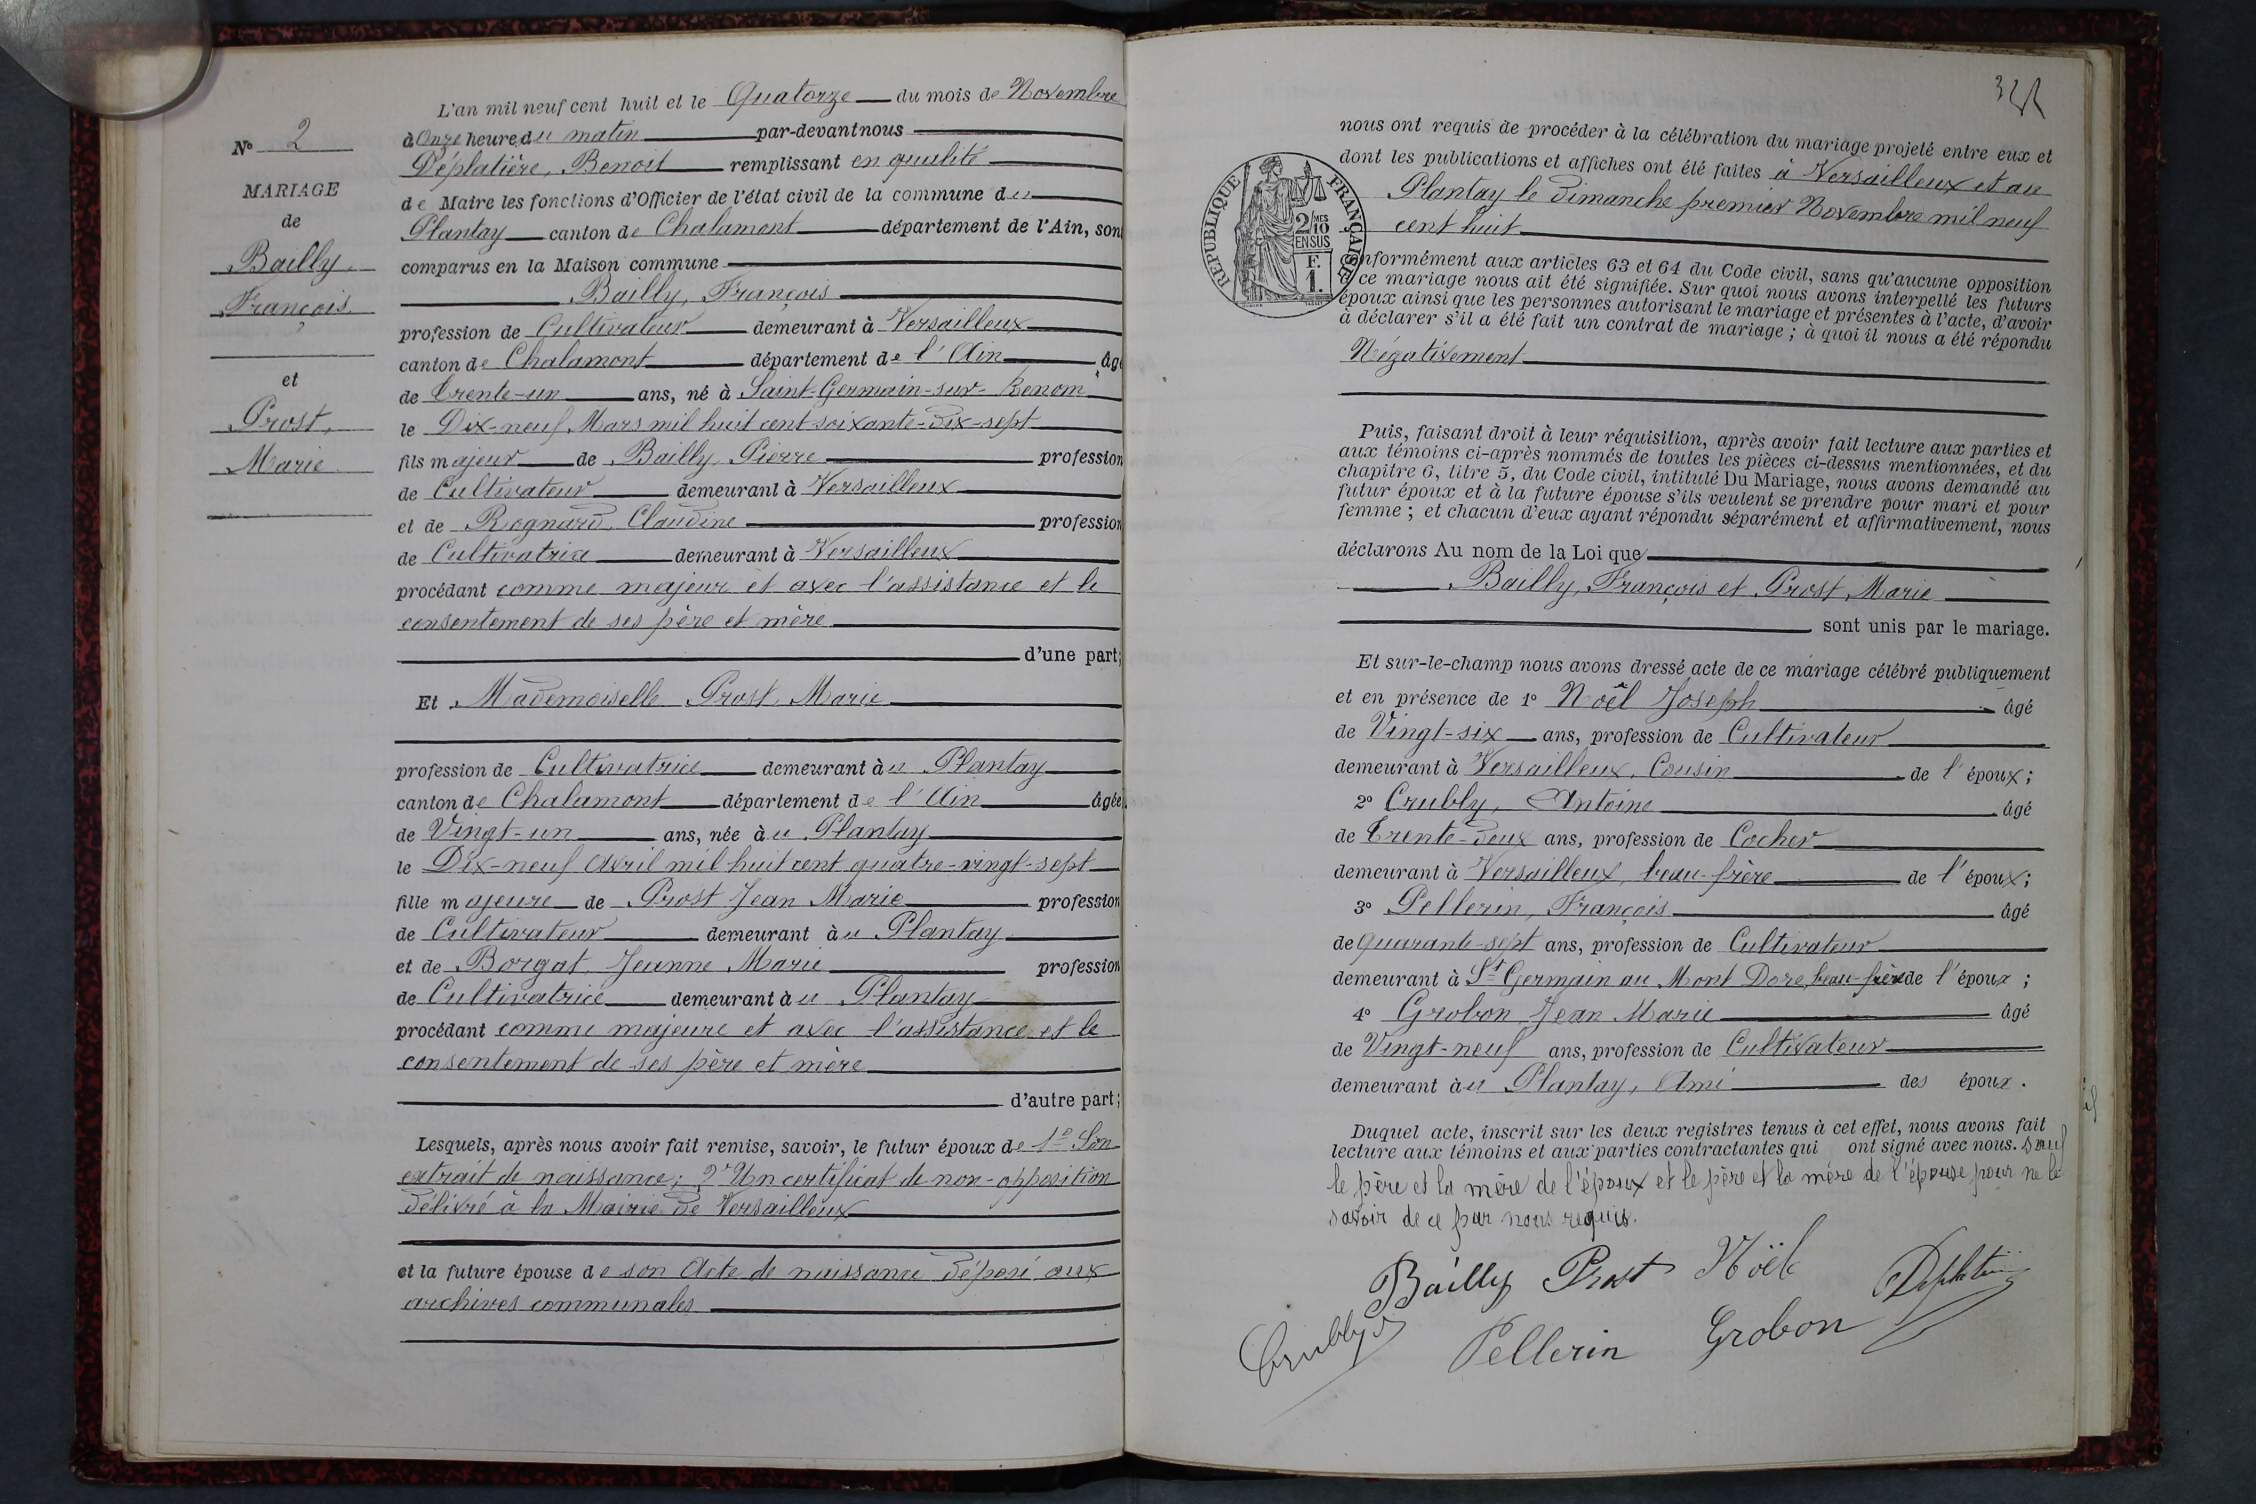 L'an mil neuf cent huit et le Quatorze du mois de Novembre
à Onze heure du matin par-devant nous
Déplatière, Benoit remplissant en qualité
de Maire les fonctions d'Officier de l'état civil de la commune du
Plantay canton de Chalamont département de l'Ain, sont
comparus en la Maison commune
Bailly, François
profession de Cultivateur demeurant à Versailleux
canton de Chalamont département de l'Ain âgé
de trente-un ans, né à Saint-Germain-sur-Renom
le Dix-neuf Mars mil huit cent soixante-dix-sept
fils majeur de Bailly, Pierre profession
de Cultivateur demeurant à Versailleux
et de Rognard, Claudine profession
de Cultivatrice demeurant à Versailleux
procédant comme majeur et avec l'assistance et le
consentement de ses père et mère
d'une part;
Et Mademoiselle Prost, Marie
profession de Cultivatrice demeurant à u Plantay
canton de Chalamont département de l'Ain âgée
de Vingt-un ans, née à u Plantay
le Dix-neuf Avril mil huit cent quatre-vingt-sept
fille majeure de Prost Jean Marie profession
de Cultivateur demeurant à u Plantay
et de Borgat, Jeanne Marie profession
de Cultivatrice demeurant à u Plantay
procédant comme majeure et avec l'assistance et le
consentement de ses père et mère
d'autre part;
Lesquels, après nous avoir fait remise, savoir, le futur époux de 1º Son
extrait de naissance; 2º Un certificat de non-opposition
délivré à la Mairie de Versailleux
et la future épouse de son Acte de naissance déposé aux
archives communales
Nº 2
MARIAGE
de
Bailly,
François
et
Prost,
Marie
nous ont requis de procéder à la célébration du mariage projeté entre eux et
dont les publications et affiches ont été faites à Versailleux et au
Plantay le dimanche premier Novembre mil neuf
cent huit
conformément aux articles 63 et 64 du Code civil, sans qu'aucune opposition
à ce mariage nous ait été signifiée. Sur quoi nous avons interpellé les futurs
époux ainsi que les personnes autorisant le mariage et présentes à l'acte, d'avoir
à déclarer s'il a été fait un contrat de mariage; à quoi il nous a été répondu
Négativement
Puis, faisant droit à leur réquisition, après avoir fait lecture aux parties et
aux témoins ci-après nommés de toutes les pièces ci-dessus mentionnées, et du
chapitre 6, titre 5, du Code civil, intitulé Du Mariage, nous avons demandé au
futur époux et à la future épouse s'ils veulent se prendre pour mari et pour
femme; et chacun d'eux ayant répondu séparément et affirmativement, nous
déclarons Au nom de la Loi que
Bailly, François et Prost, Marie
sont unis par le mariage.
Et sur-le-champ nous avons dressé acte de ce mariage célébré publiquement
et en présence de 1º Noël Joseph âgé
de Vingt-six ans, profession de Cultivateur
demeurant à Versailleux, Cousin de l'époux;
2º Crubly, Antoine âgé
de Trente-deux ans, profession de Cocher
demeurant à Versailleux, beau-frère de l'époux;
3º Pellerin, François âgé
de quarante-sept ans, profession de Cultivateur
demeurant à St Germain au Mont Dore, beau-frère de l'époux;
4º Grobon, Jean Marie âgé
de Vingt-neuf ans, profession de Cultivateur
demeurant à u Plantay, Ami des époux.
Duquel acte, inscrit sur les deux registres tenus à cet effet, nous avons fait
lecture aux témoins et aux parties contractantes qui ont signé avec nous. sauf
le père et la mère de l'époux et le père et la mère de l'épouse pour ne le
savoir de ce par nous requis.
Bailly Prost Noël Déplatière
Crubly Pellerin Grobon
RÉPUBLIQUE FRANÇAISE
2/10 MES
EN SUS
F.
1.